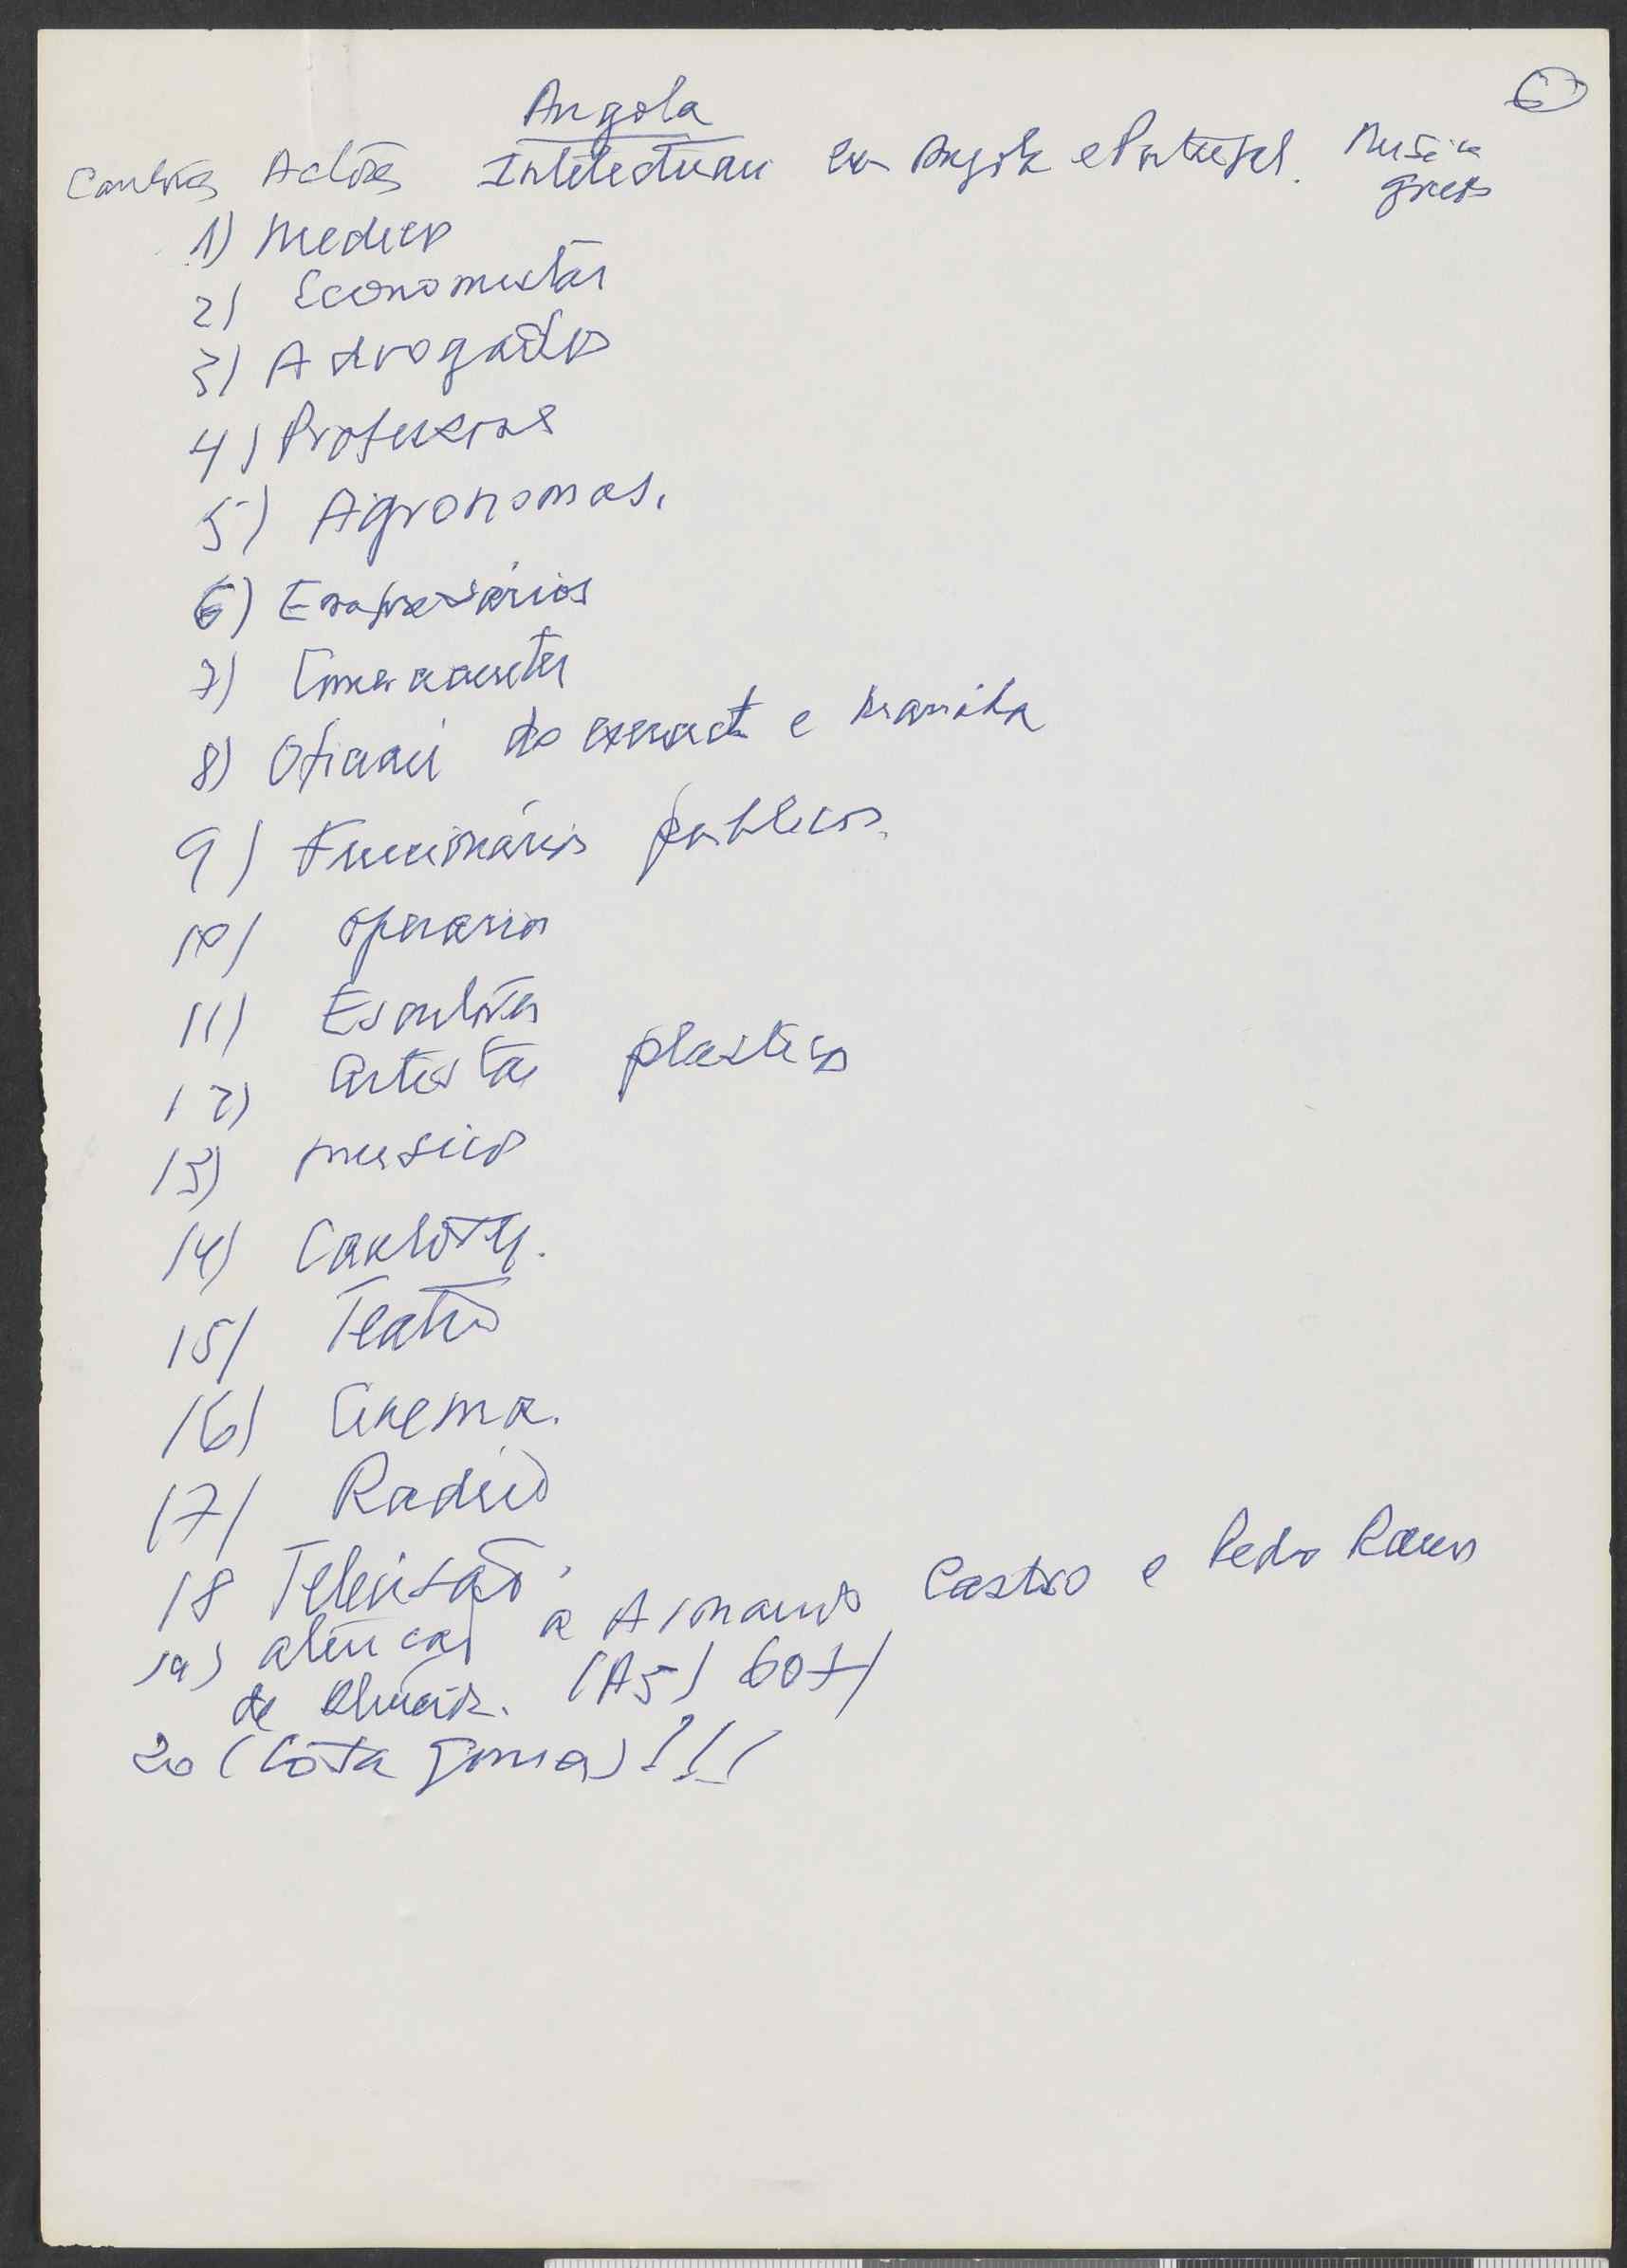 Angola
Cantores Actores Intelectuais em Angola e Portugal. Musica
1) Medicos
2) Economistas
3) Advogados
4) Professores
5) Agronomos.
6) Empresários
7) Comerciantes
8) Oficiais do exercito e marinha
9) Funcionários publicos.
10) operarios
11) Escultores
12) Artistas plasticos
13) musicos
14) Cantores.
15) Teatro
16) Cinema.
17) Radio
18 Televisão.
19) atenção a Armando Castro e Pedro Ramos
de Almeida. (A5) 607)
20 (Costa Gomes)!!!